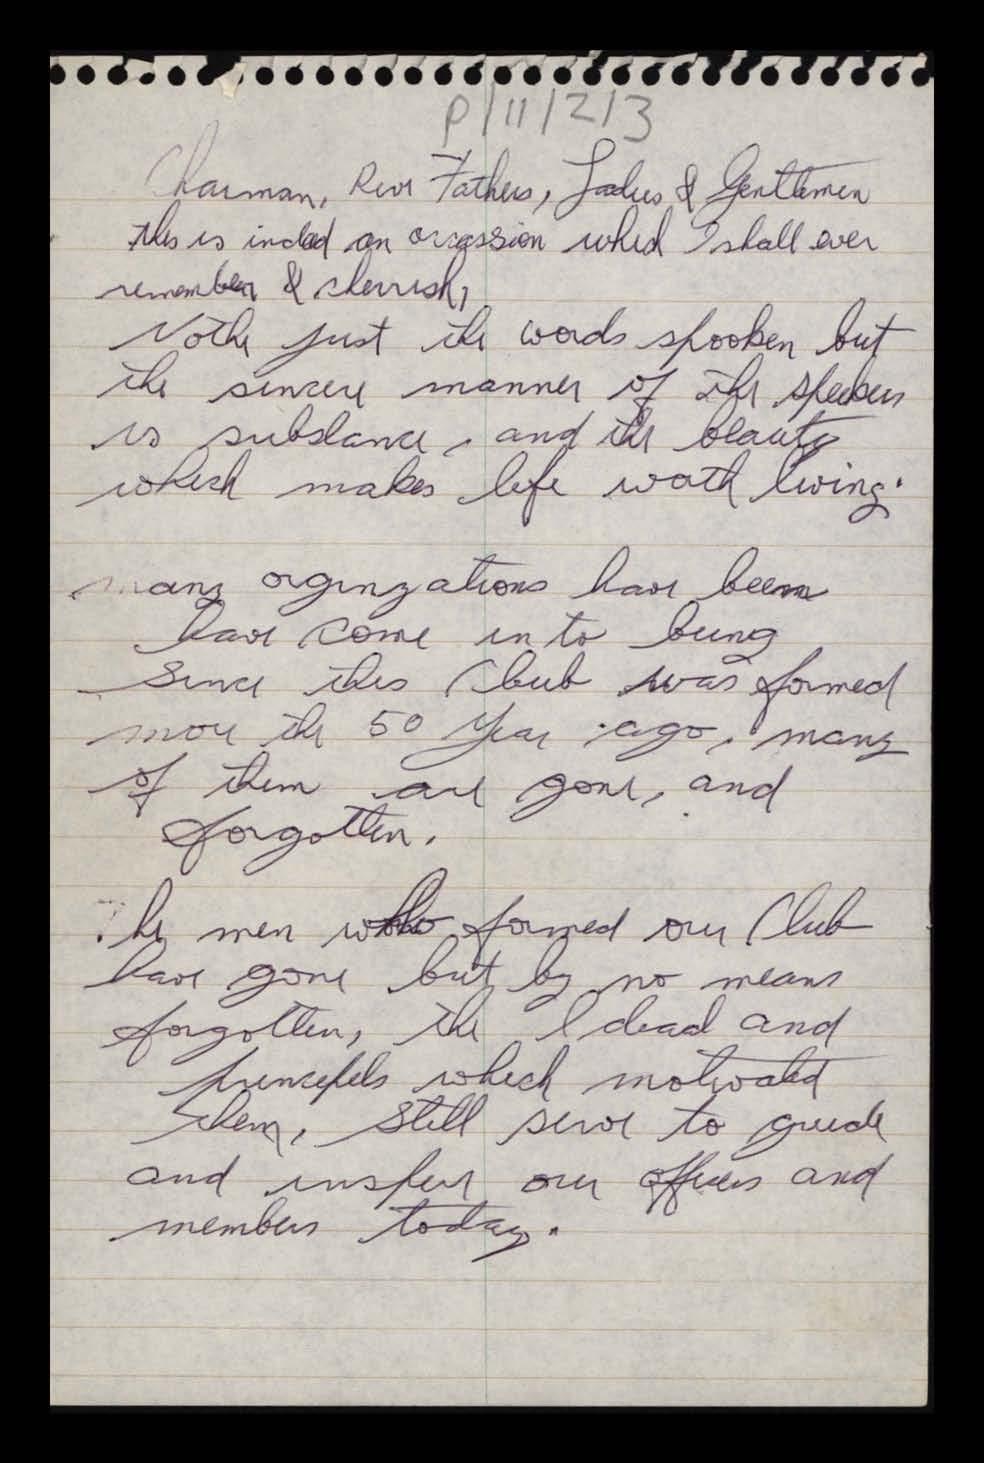 P/11/2/3
Chairman, Rev Fathers, Ladies & Gentlemen
this is indeed an occassion which I shall ever
remember & cherrish,
just the words spooken but
the sincere manner of the
is substance, and the beauty
which makes life worth living.
many orginzations have been
have come into being
Since this Club was formed
more the 50 year ago, many
of them are gone, and
forgotten.
The men who formed our Club
have gone but by no means
forgotten, the Idead and
princepels which motivated
them, still serve to guide
and inspire our officers and
members today.